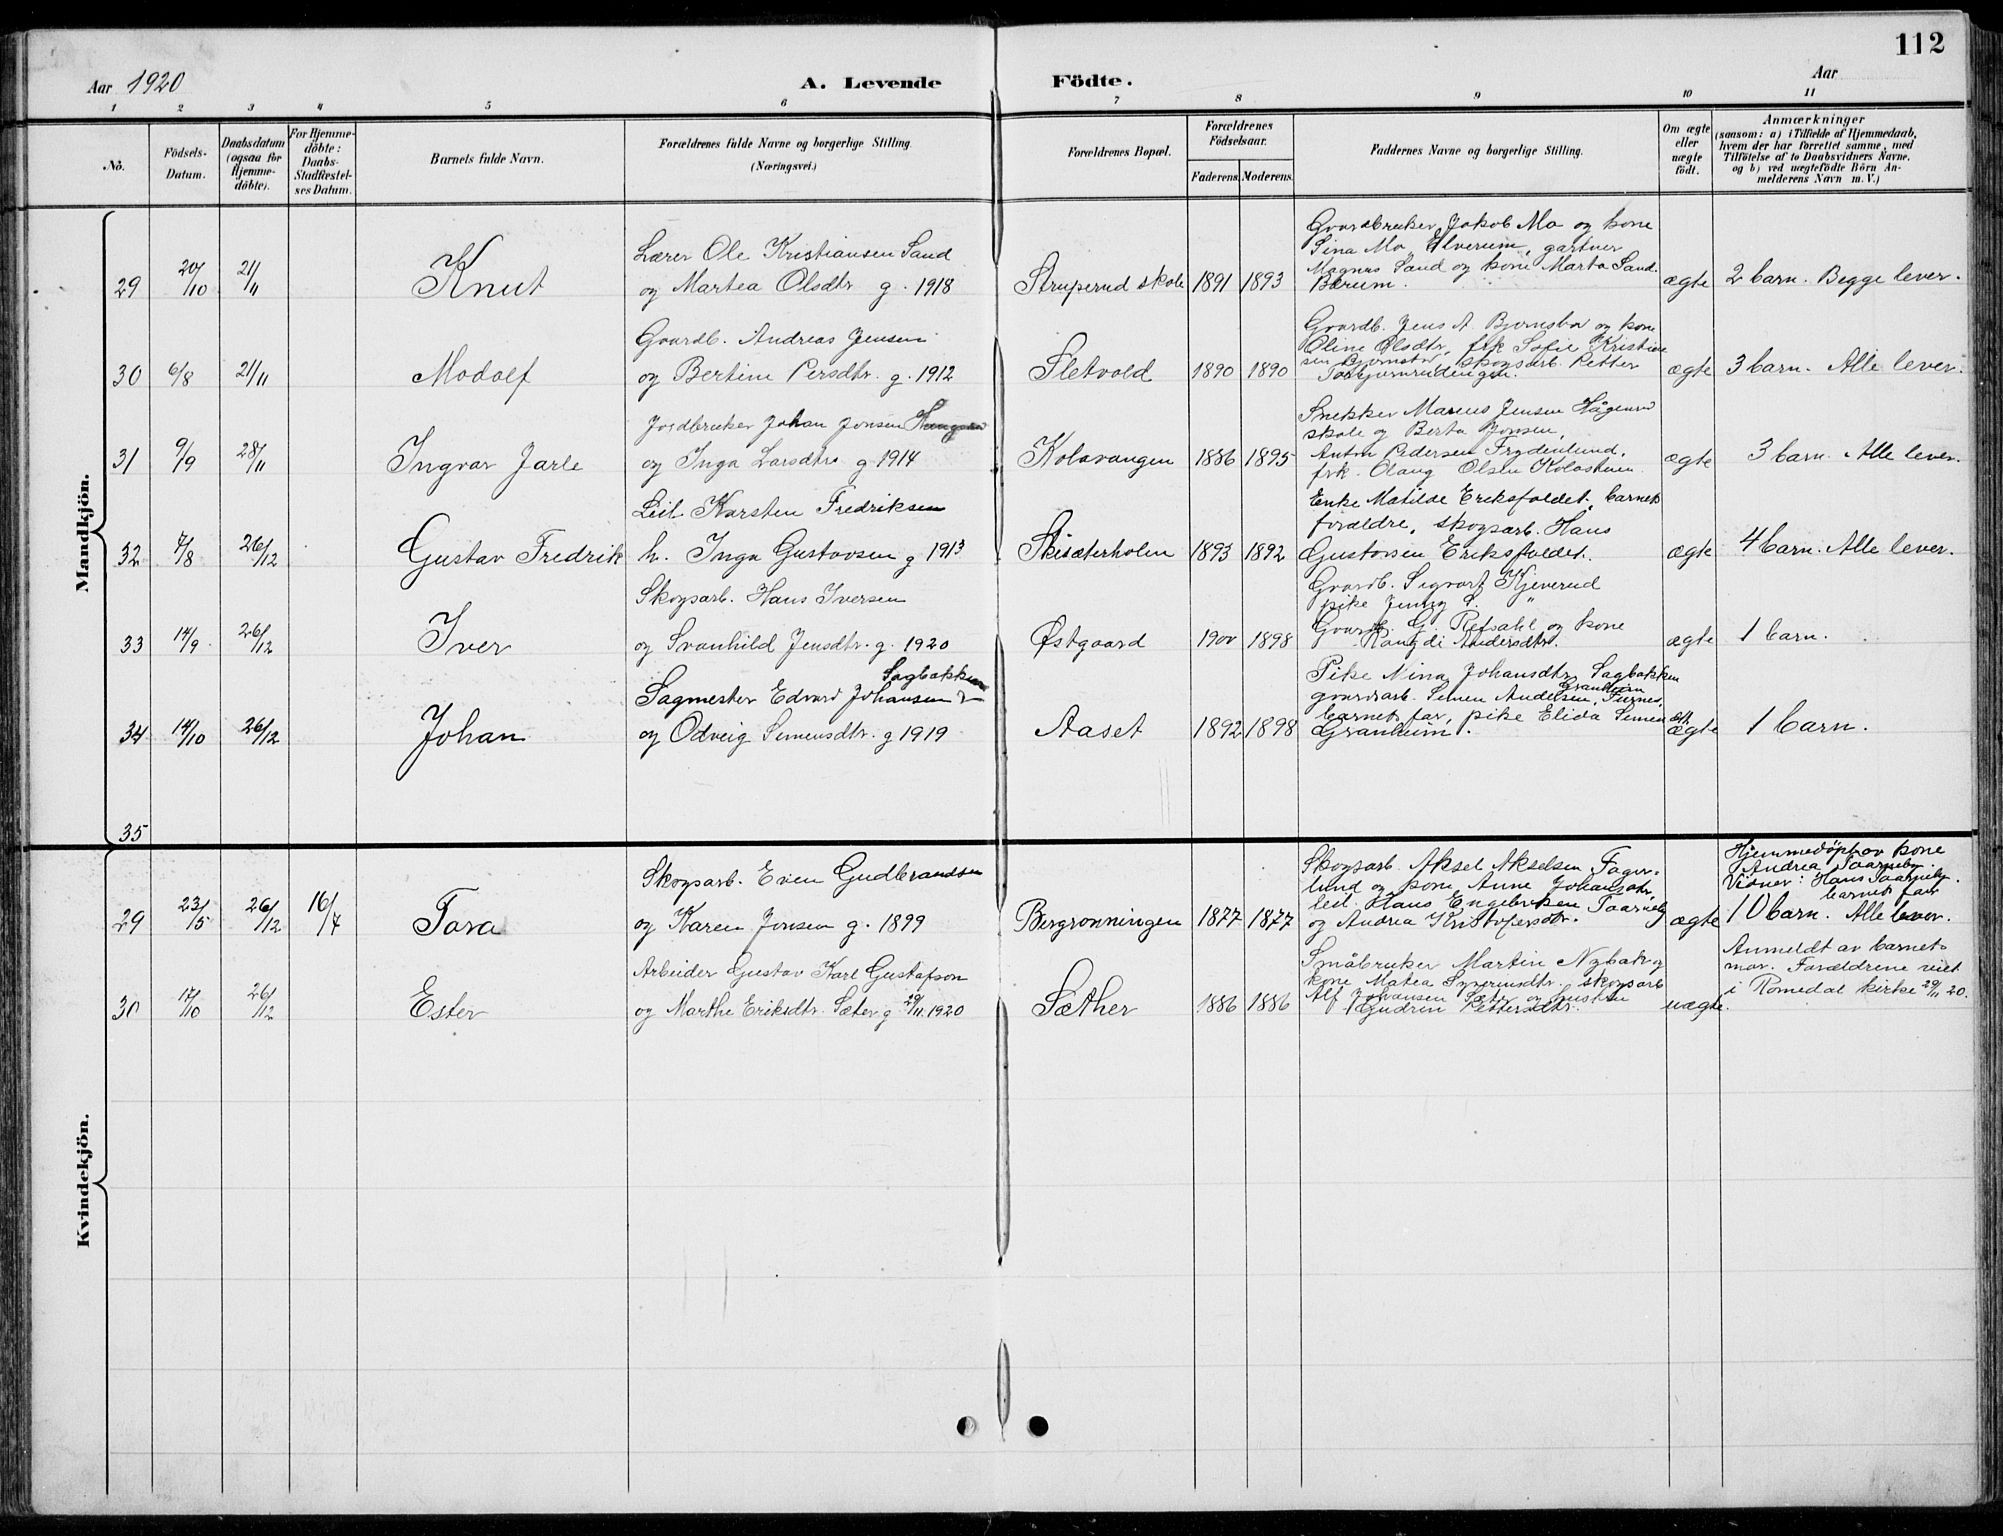 112
Aar 1920
A. Levende Födte.
Aar
1 2 3 4 5 6 7 8 9 10 11
No.
Födsels-Datum.
Daabsdatum (ogsaa for Hjemme-döbte).
For Hjemme-döbte: Daabs-Stadfæstel-ses Datum.
Barnets fulde Navn.
Forældrenes fulde Navne og borgerlige Stilling. (Næringsvei.)
Forældrenes Bopæl.
Forældrenes Födselsaar.
Faderens. Moderens.
Faddernes Navne og borgerlige Stilling.
Om ægte eller uægte födt.
Anmærkninger
(saasom: a) i Tilfælde af Hjemmedaab,
hvem der har forrettet samme, med
Tilföielse af to Daabsvidners Navne,
og b) ved uægtefödte Börn An-
melderens Navn m. V.)
Mandkjön.
29 20/10 21/11 Knut
Lærer Ole Kristiansen Sand
og Martea Olsdtr g. 1918
Struperud skole 1891 1893
Gaardbruker Jakob Mo og kone
Sina Mo, Elverum, gartner
Magnus Sand og kone Marta Sand.
Bærum.
ægte 2 barn. Begge lever.
30 6/8 21/11 Modolf
Gaardb. Andreas Jensen
og Bertine Persdtr. g. 1912
Sletvold 1890 1890
Gaardb. Jens A. Bjørnsbo og kone
Oline Olsdtr, frk Sofie Kristian
sen skogsarb. Petter
ægte 3 barn. Alle lever.
31 9/9 28/11 Ingvar Jarle
Jordbruker Johan Jonsen
og Inga Larsdtr g 1914
Kolavangen 1886 1895
Snekker Marius Jensen
skole og Berta Jonsen,
Anton Pedersen Frydenlund,
frk. Olaug Olsen
ægte 3 barn. Alle lever.
32 7/8 26/12 Gustav Fredrik
Leil. Karsten Fredriksen
h. Inga Gustavsen g 1913
Skisæterholen 1893 1892
Enke Matilde Eriksfaldet, barnets
forældre, skogsarb. Hans
Gustavsen Eriksfaldet.
ægte 4 barn. Alle lever.
33 14/9 26/12 Iver
Skogsarb. Hans Iversen
og Svanhild Jensdtr. g. 1920
Østgaard 1900 1898
Gaardb. Sigvart Kjeverud
pike Jenny S. "
Gaardb. G. Refsahl og kone
Randi Andersdtr.
ægte 1 barn.
34 14/10 26/12 Johan
Sagbakken
Sagmester Edvard Johansen
og Odveig Simensdtr. g 1919
Aaset 1892 1898
Pike Nina Johansdtr Sagbakken
Granheim
gaardsarb. Simen Andersen, Furnes,
barnets far, pike Elida Simensdtr
Granheim.
ægte 1 barn.
35
Kvindekjön.
29 23/5 26/12 16/7 Tora
Skogsarb. Even Gudbrandsen
og Karen Jonsen g. 1899
Bergronningen 1877 1877
Skogsarb. Aksel Akselsen Fager-
lund og kone Anne Johansdtr,
leil. Hans Engebretsen Taarneby
og Andrea Kristofersdtr.
ægte
Hjemmedøpt av kone
Andrea Taarneby.
Vidner: Hans Taarneby
barnets far
10 barn. Alle lever.
30 17/10 26/12 Ester
Arbeider Gustav Karl Gustafson
og Marthe Eriksdtr. Sæter g 29/11 1920
Sæther 1886 1886
Småbruker Martin Nybak og
kone Matea Syverinsdtr, skogsarb
Alf Johansen Sæter og hustru
Gudrun Pettersdtr.
uægte.
Anmeldt av barnets
mor. Forældrene viet
i Romedal kirke 29/11 20.